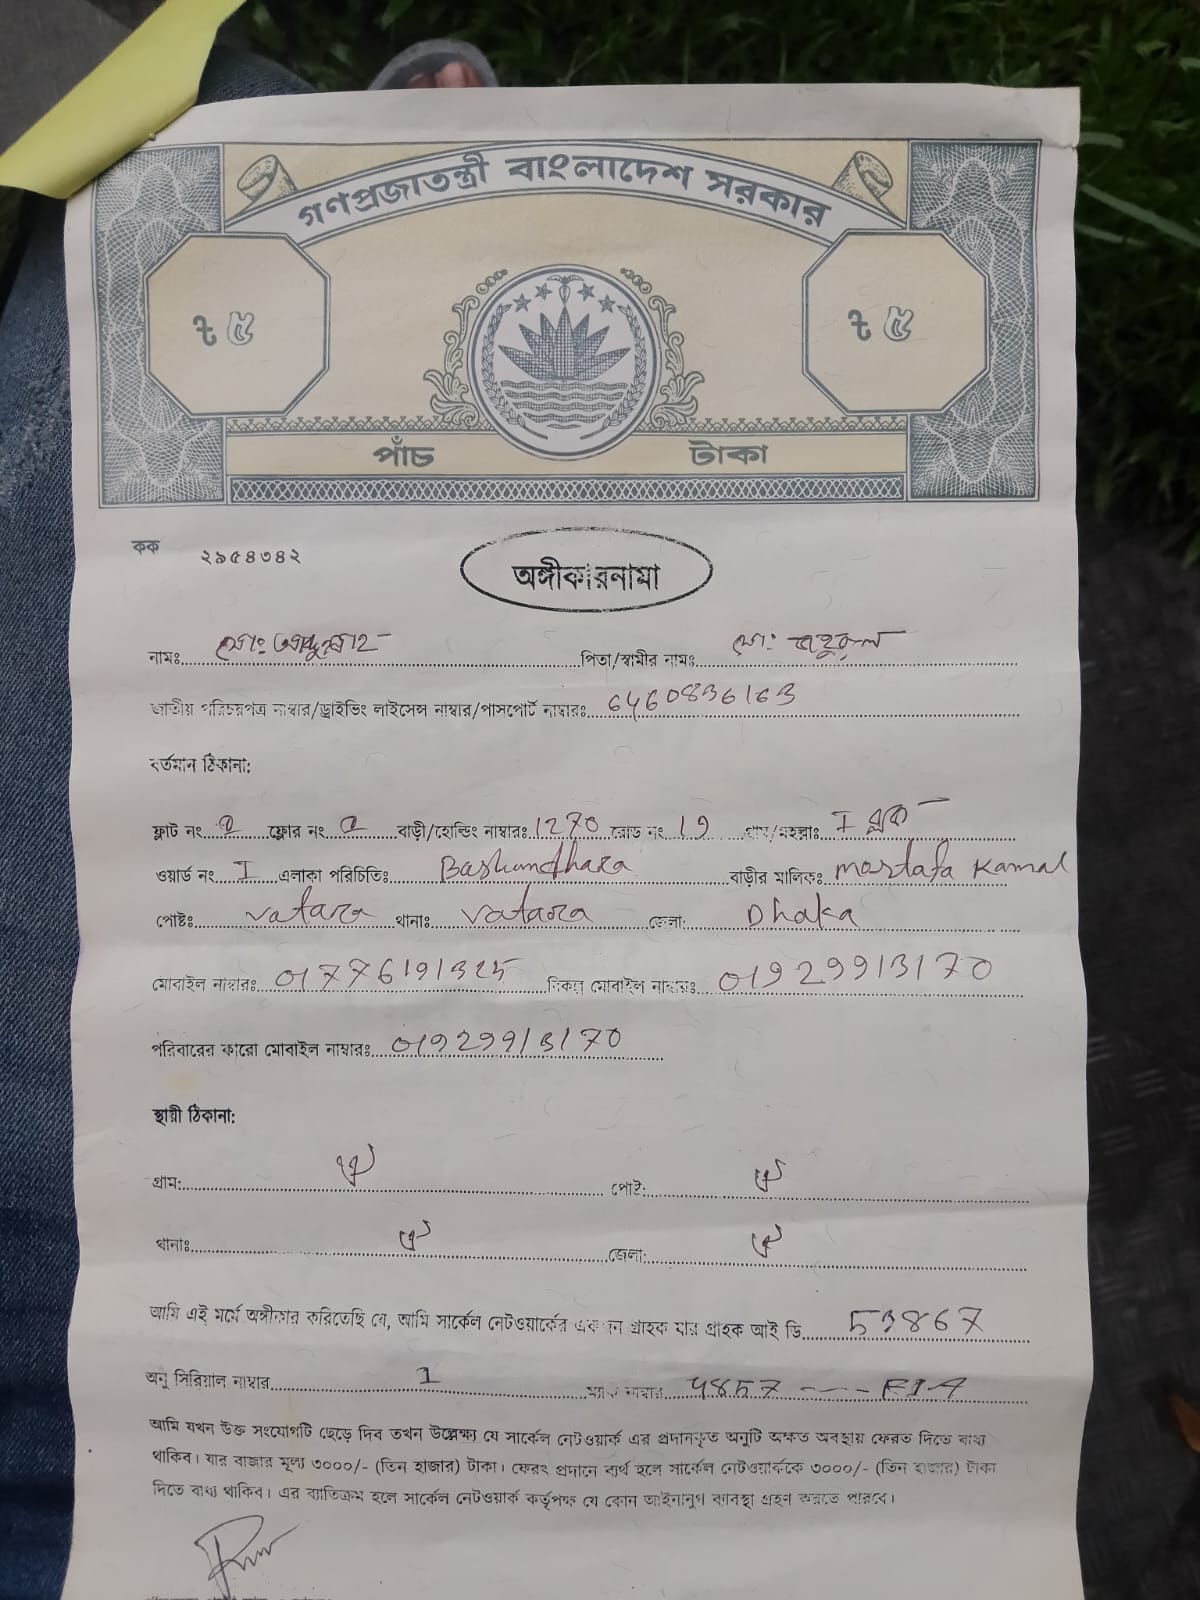 গণপ্রজাতন্ত্রী বাংলাদেশ সরকার
৳ ৫ ৳ ৫
পাঁচ টাকা
কক ২৯৫৪৩৪২
অঙ্গীকারনামা
নামঃ মোঃ আব্দুল্লাহ পিতা/স্বামীর নামঃ মোঃ
জাতীয় পরিচয়পত্র নাম্বার/ড্রাইভিং লাইসেন্স নাম্বার/পাসপোর্ট নাম্বারঃ 6460836163
বর্তমান ঠিকানা:
ফ্লাট নং ফ্লোর নং বাড়ী/হোল্ডিং নাম্বারঃ 1270 রোড নং 19 গ্রাম/মহল্লাঃ I ব্লক
ওয়ার্ড নং I এলাকা পরিচিতিঃ Bashundhara বাড়ীর মালিকঃ mostafa Kamal
পোষ্টঃ vatara থানাঃ vatara জেলা: Dhaka
মোবাইল নাম্বারঃ 01776191325 বিকল্প মোবাইল নাম্বারঃ 01929913170
পরিবারের কারো মোবাইল নাম্বারঃ 01929913170
স্থায়ী ঠিকানা:
গ্রাম: পোষ্ট:
থানাঃ জেলা:
আমি এই মর্মে অঙ্গীকার করিতেছি যে, আমি সার্কেল নেটওয়ার্কের একজন গ্রাহক যার গ্রাহক আই ডি 53867
অনু সিরিয়াল নাম্বার 1 ম্যাক নাম্বার
আমি যখন উক্ত সংযোগটি ছেড়ে দিব তখন উল্লেক্ষ্য যে সার্কেল নেটওয়ার্ক এর প্রদানকৃত অনুটি অক্ষত অবস্থায় ফেরত দিতে বাধ্য
থাকিব। যার বাজার মূল্য ৩০০০/- (তিন হাজার) টাকা। ফেরৎ প্রদানে ব্যর্থ হলে সার্কেল নেটওয়ার্ককে ৩০০০/- (তিন হাজার) টাকা
দিতে বাধ্য থাকিব। এর ব্যতিক্রম হলে সার্কেল নেটওয়ার্ক কর্তৃপক্ষ যে কোন আইনানুগ ব্যবস্থা গ্রহণ করতে পারবে।